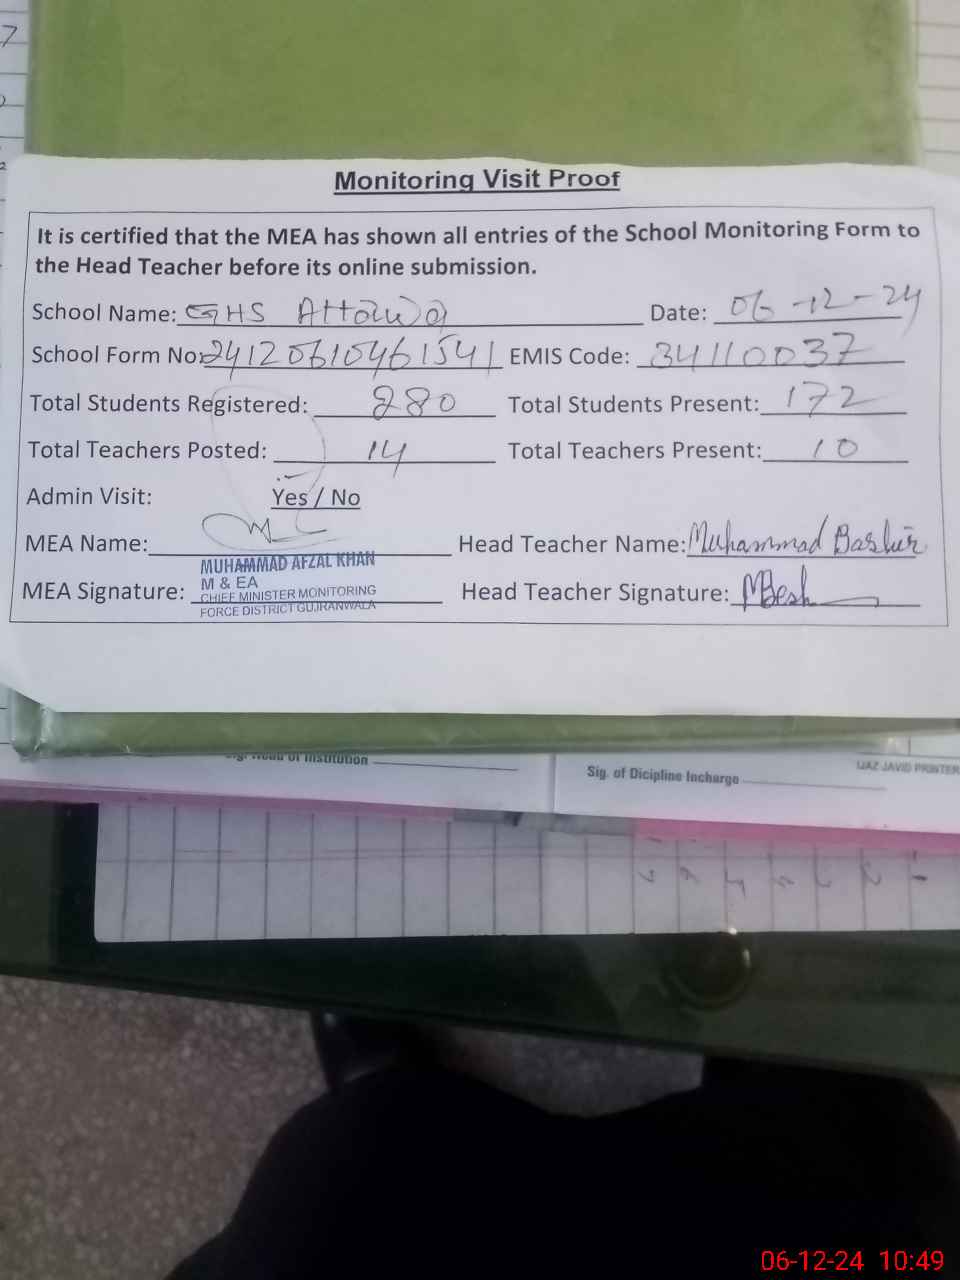 Monitoring Visit Proof
It is certified that the MEA has shown all entries of the School Monitoring Form to
the Head Teacher before its online submission.
School Name: GHS Attawa Date: 06-12-24
School Form No: 24120610461541 EMIS Code: 34110037
Total Students Registered: 280 Total Students Present: 172
Total Teachers Posted: 14 Total Teachers Present: 10
Admin Visit: Yes / No
MEA Name: Head Teacher Name: Muhammad Bashir
MUHAMMAD AFZAL KHAN
M & EA
MEA Signature: CHIEF MINISTER MONITORING Head Teacher Signature:
FORCE DISTRICT GUJRANWALA
Sig. Head of Institution
Sig. of Dicipline Incharge
IJAZ JAVID PRINTER
06-12-24 10:49